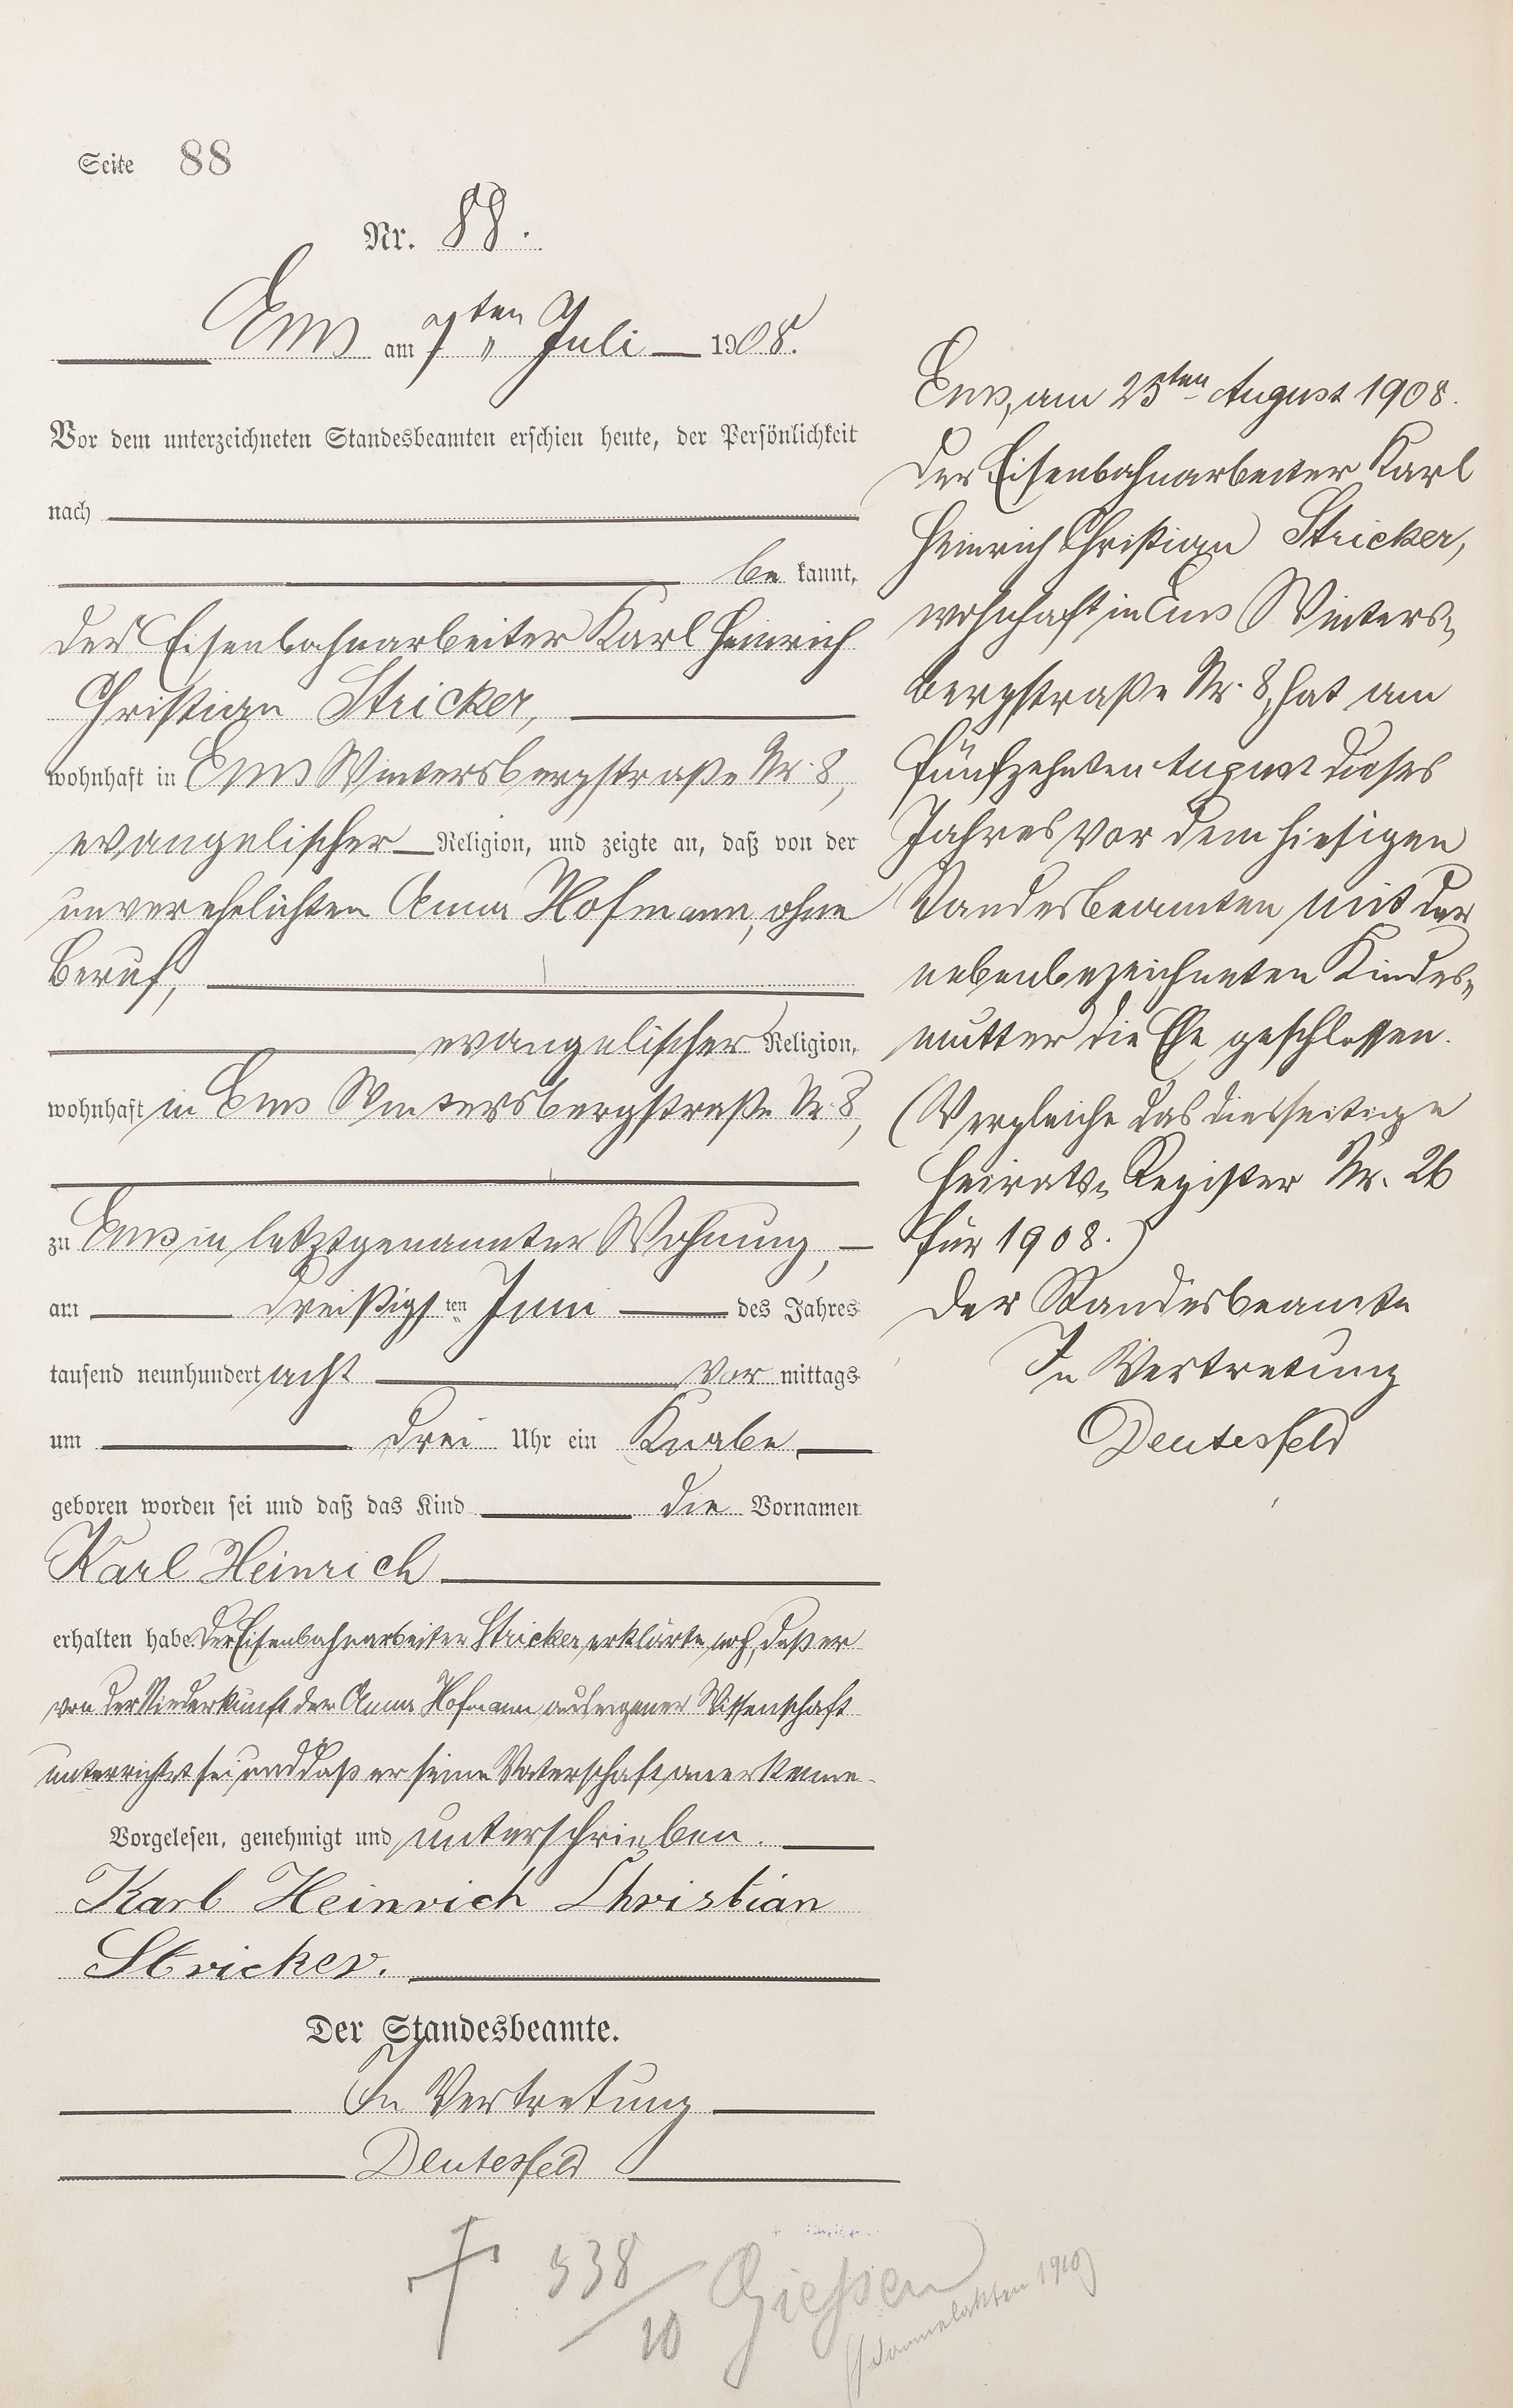 Seite 88
Nr. 88.
Ems am 7ten " Juli 1908.
Vor dem unterzeichneten Standesbeamten erschien heute, der Persönlichkeit
nach
be kannt,
der Eisenbahnarbeiter Karl Heinrich
Christian Stricker,
wohnhaft in Ems Wintersbergstraße Nr. 8,
evangelischer Religion, und zeigte an, daß von der
unverehelichten Anna Hofmann, ohne
Beruf,
evangelischer Religion,
wohnhaft in Ems Wintersbergstraße Nr. 8,
zu Ems in letztgenannter Wohnung,
am dreißigs ten Juni des Jahres
tausend neunhundert acht Vor mittags
um drei Uhr ein Knabe
geboren worden sei und daß das Kind die Vornamen
Karl Heinrich
erhalten habe. Der Eisenbahnarbeiter Stricker erklärte noch, daß er
von der Niederkunft der Anna Hofmann aus eigener Wissenschaft
unterrichtet sei und daß er seine Vaterschaft anerkenne.
Vorgelesen, genehmigt und unterschrieben.
Karl Heinrich Christian
Stricker.
Der Standesbeamte.
In Vertretung
Deutesfeld
Ems, am 25ten August 1908.
Der Eisenbahnarbeiter Karl
Heinrich Christian Stricker,
wohnhaft in Ems Winters-
bergstraße Nr. 8, hat am
fünfzehnten August dieses
Jahres vor dem hiesigen
Standesbeamten mit der
nebenbezeichneten Kindes-
mutter die Ehe geschlossen.
(Vergleiche das diesseitige
Heirats-Register Nr. 26
für 1908.)
Der Standesbeamte
In Vertretung
Deutesfeld
† 538/10 Giessen
(Sammelakten 1910)